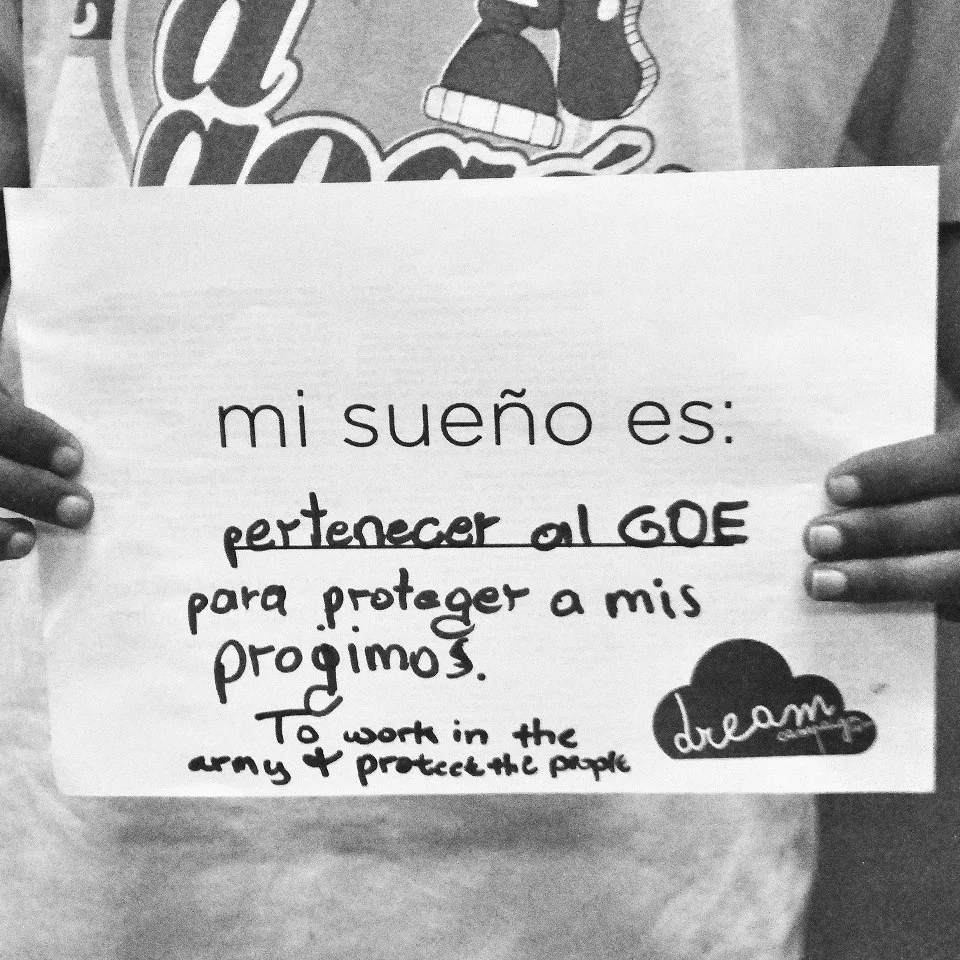 a
mi sueño es:
pertenecer al GOE
para proteger a mis
progimos.
To work in the
army & protect the people
dream
campaign